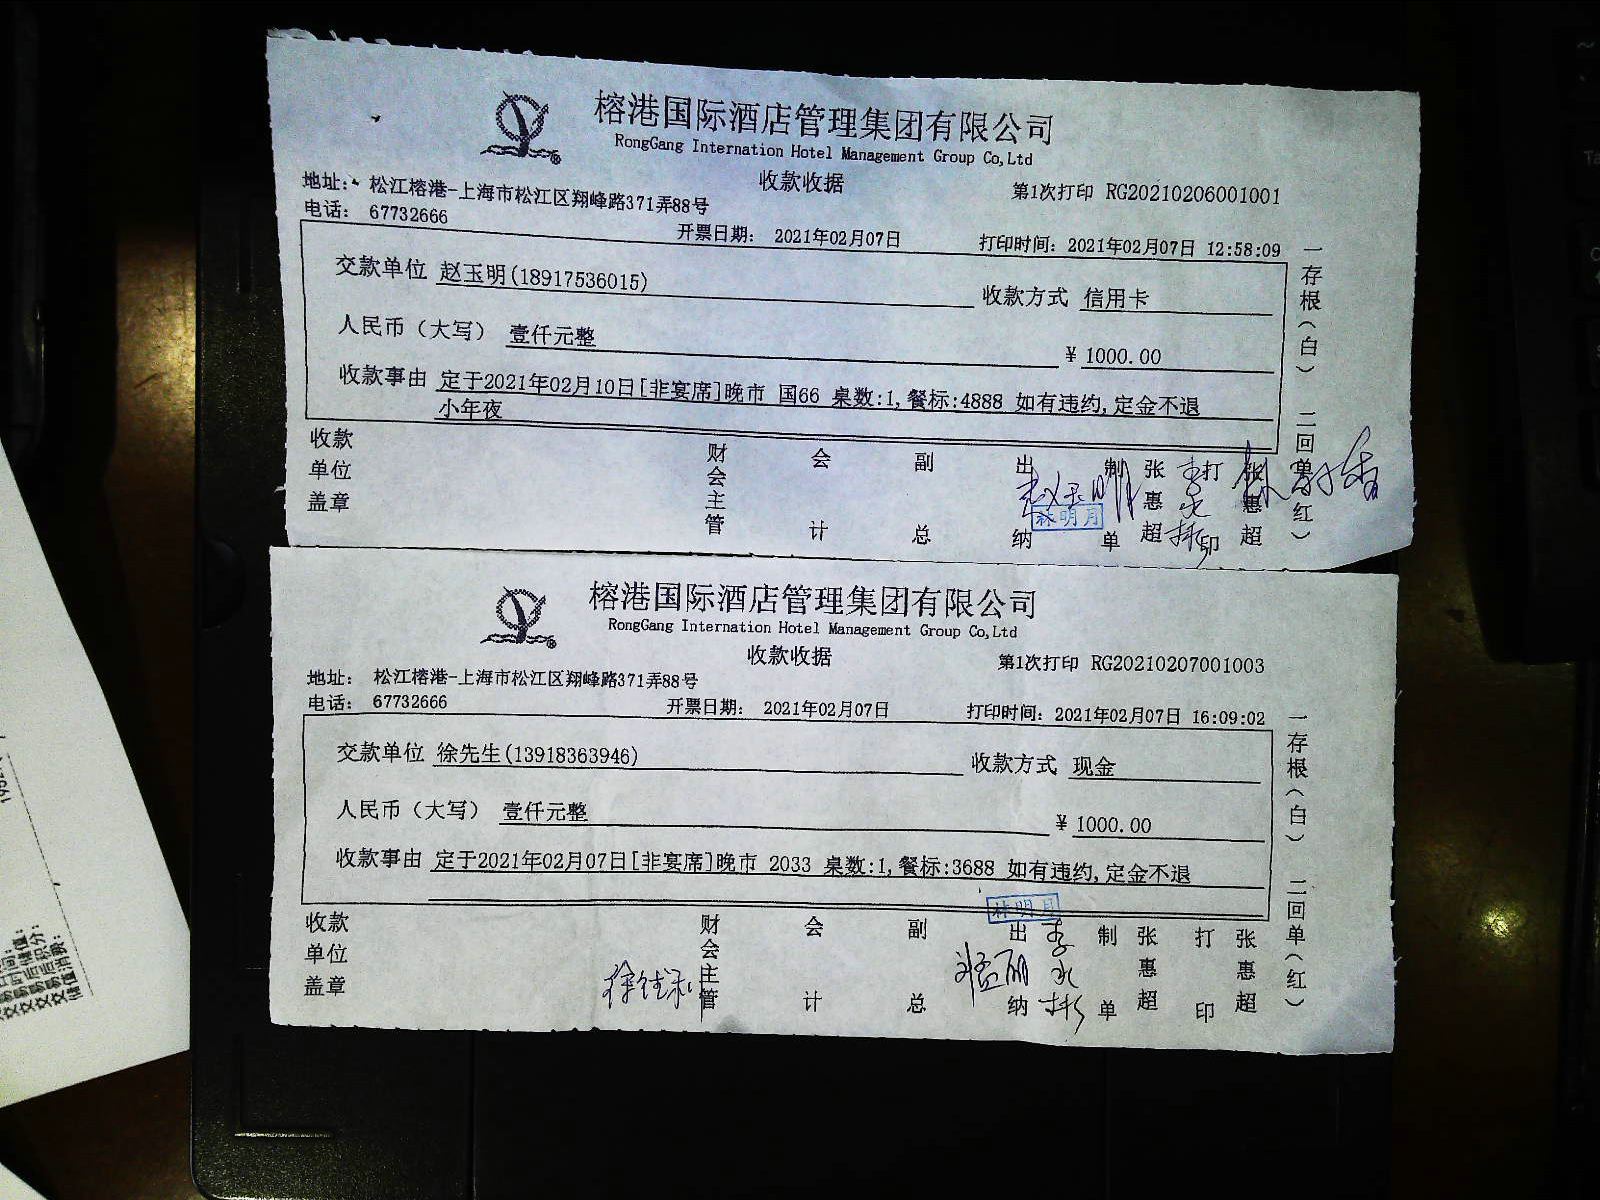 榕港国际酒店管理集团有限公司
RongGang Internation Hotel Management Group Co,Ltd
收款收据
第1次打印 RG20210206001001
地址： 松江榕港-上海市松江区翔峰路371弄88号
电话： 67732666
开票日期： 2021年02月07日
打印时间：2021年02月07日 12:58:09
交款单位 赵玉明(18917536015)
收款方式 信用卡
人民币（大写） 壹仟元整
¥ 1000.00
收款事由 定于2021年02月10日[非宴席]晚市 国66 桌数:1,餐标:4888 如有违约,定金不退
小年夜
一存根（白） 二回单（红）
收款单位盖章
财会主管
会计
副总
出纳
赵玉明
林明月
制单
张惠超
李永彬
打印
张惠超
榕港国际酒店管理集团有限公司
RongGang Internation Hotel Management Group Co,Ltd
收款收据
第1次打印 RG20210207001003
地址： 松江榕港-上海市松江区翔峰路371弄88号
电话： 67732666
开票日期： 2021年02月07日
打印时间：2021年02月07日 16:09:02
交款单位 徐先生(13918363946)
收款方式 现金
人民币（大写） 壹仟元整
¥ 1000.00
收款事由 定于2021年02月07日[非宴席]晚市 2033 桌数:1,餐标:3688 如有违约,定金不退
一存根（白） 二回单（红）
收款单位盖章
财会主管
会计
副总
出纳
林明月
李永彬
制单
张惠超
打印
张惠超